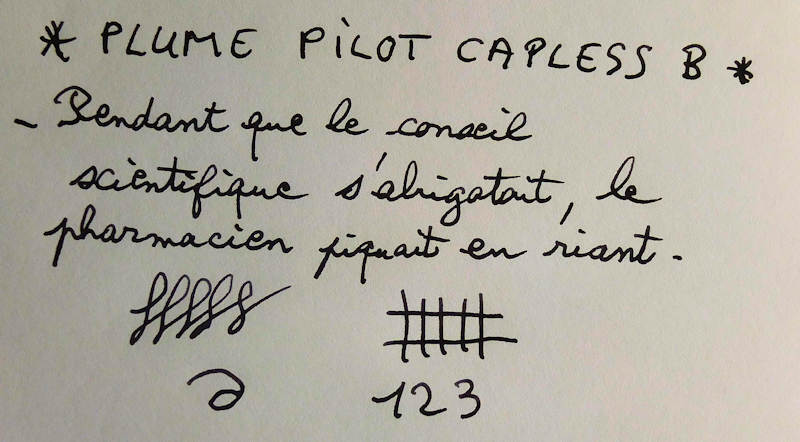 * PLUME PILOT CAPLESS B *
- Pendant que le conseil
scientifique s'alrigatait, le
pharmacien piquait en riant.
123